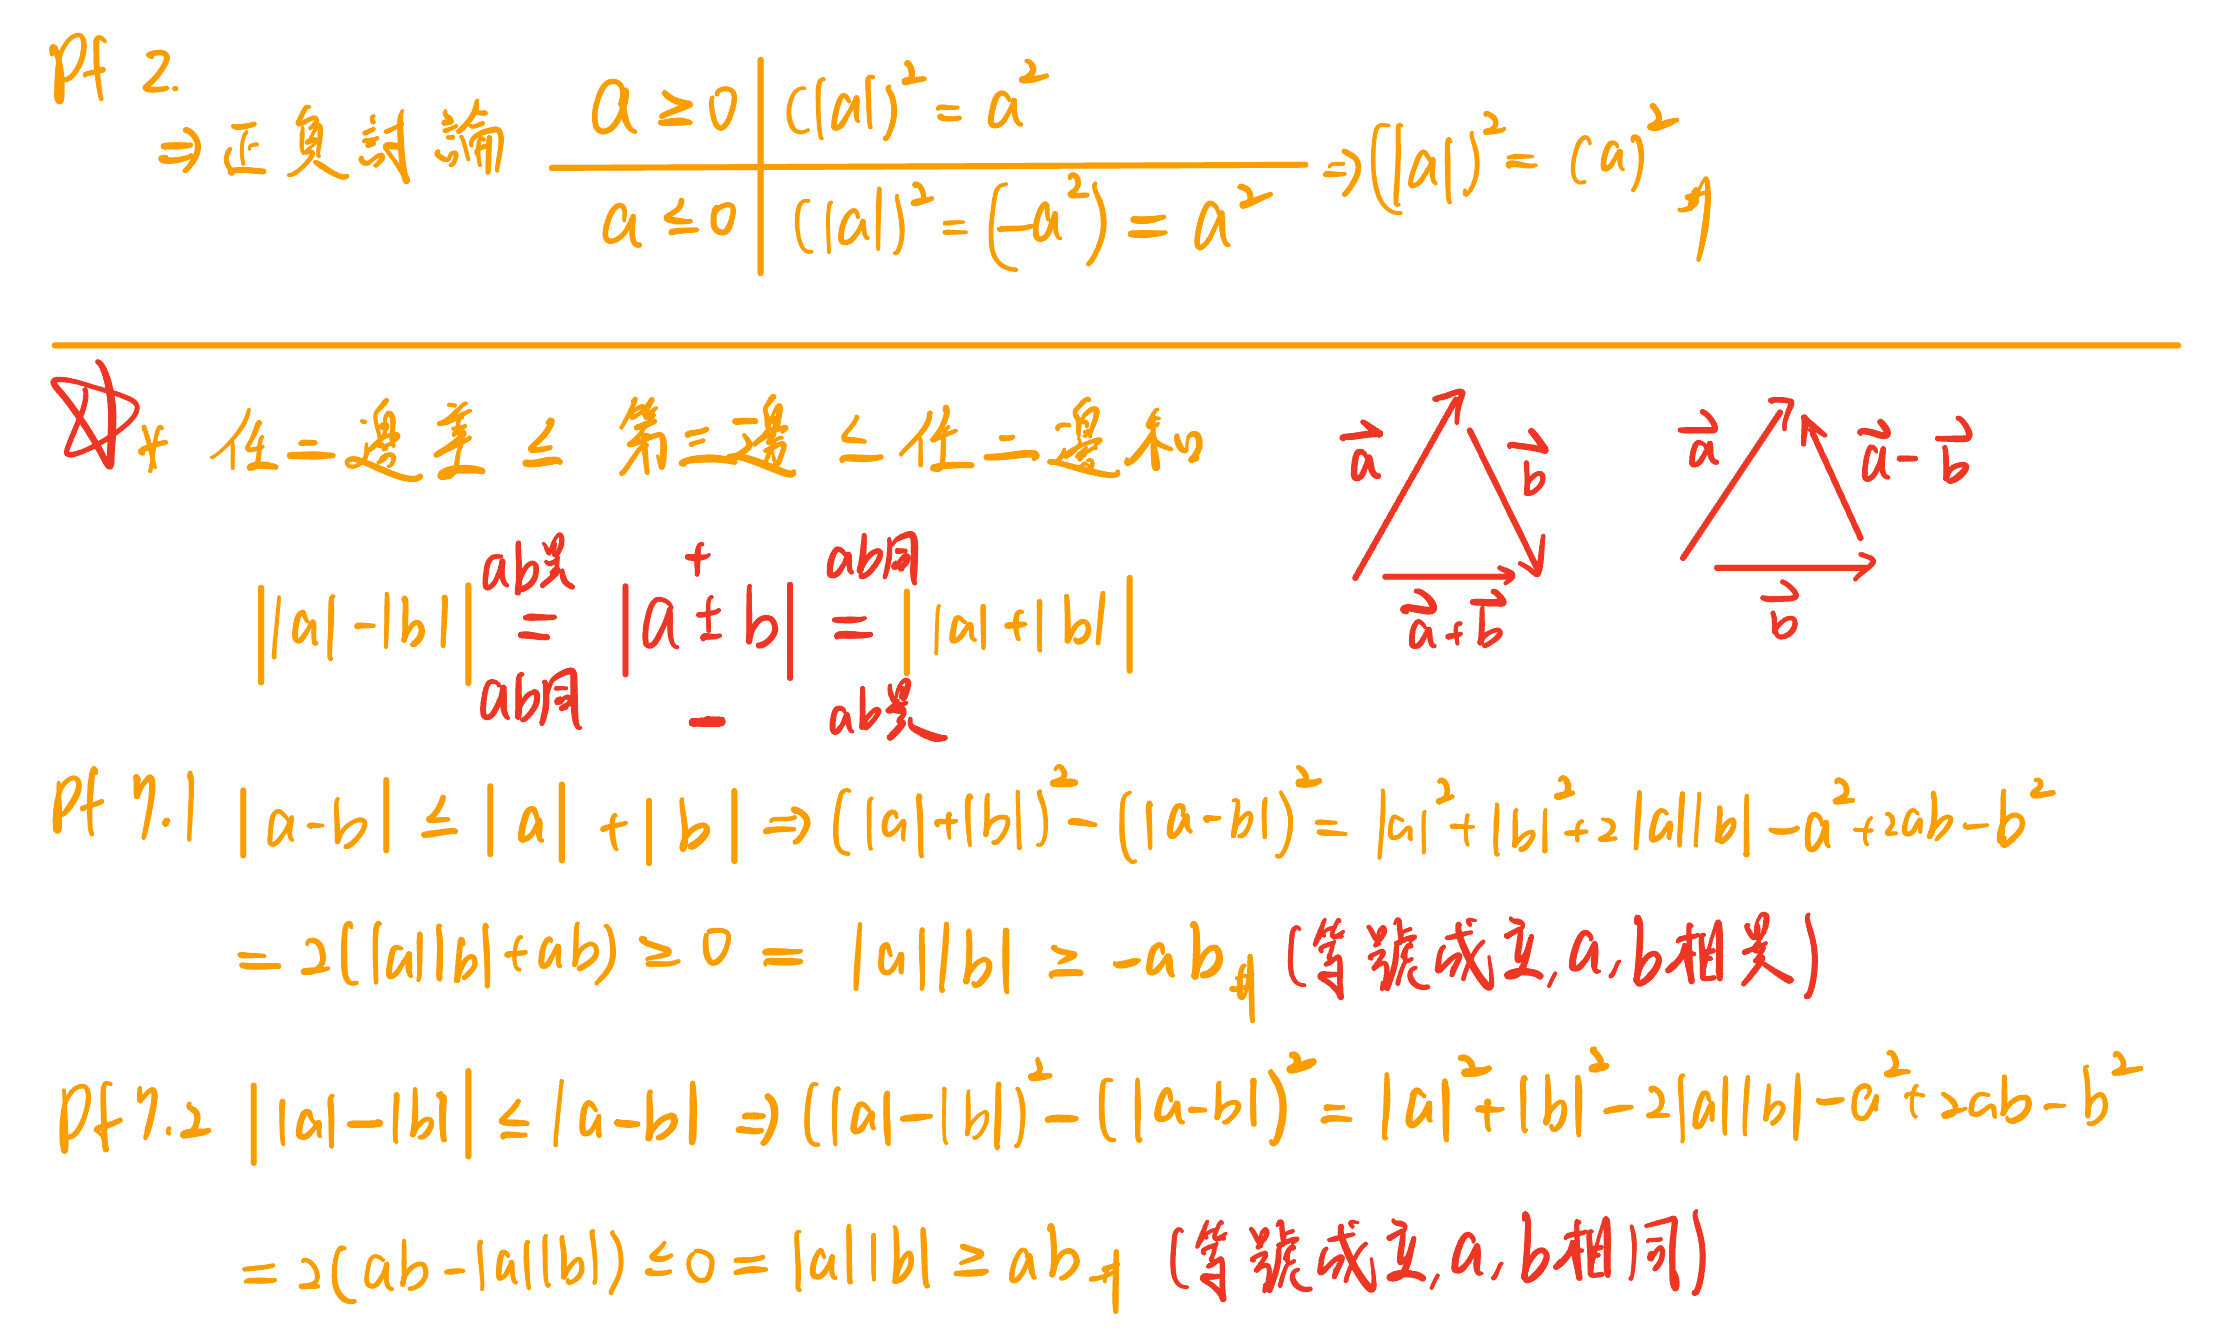 pf 2.
⇒ 正負討論 a ≥ 0 | (|a|)² = a²
a ≤ 0 | (|a|)² = (-a²) = a² ⇒ (|a|)² = (a)²
* 任二邊差 ≤ 第三邊 ≤ 任二邊和
a⃗ b⃗ a⃗+b⃗
a⃗ a⃗-b⃗ b⃗
ab異 + ab同
||a|-|b|| = |a±b| = ||a|+|b||
ab同 - ab異
pf 7.1 |a-b| ≤ |a|+|b| ⇒ (|a|+|b|)² - (|a-b|)² = |a|²+|b|²+2|a||b|-a²+2ab-b²
= 2(|a||b|+ab) ≥ 0 = |a||b| ≥ -ab (等號成立, a, b相異)
pf 7.2 ||a|-|b|| ≤ |a-b| ⇒ (|a|-|b|)² - (|a-b|)² = |a|²+|b|²-2|a||b|-a²+2ab-b²
= 2(ab-|a||b|) ≤ 0 = |a||b| ≥ ab (等號成立, a, b相同)